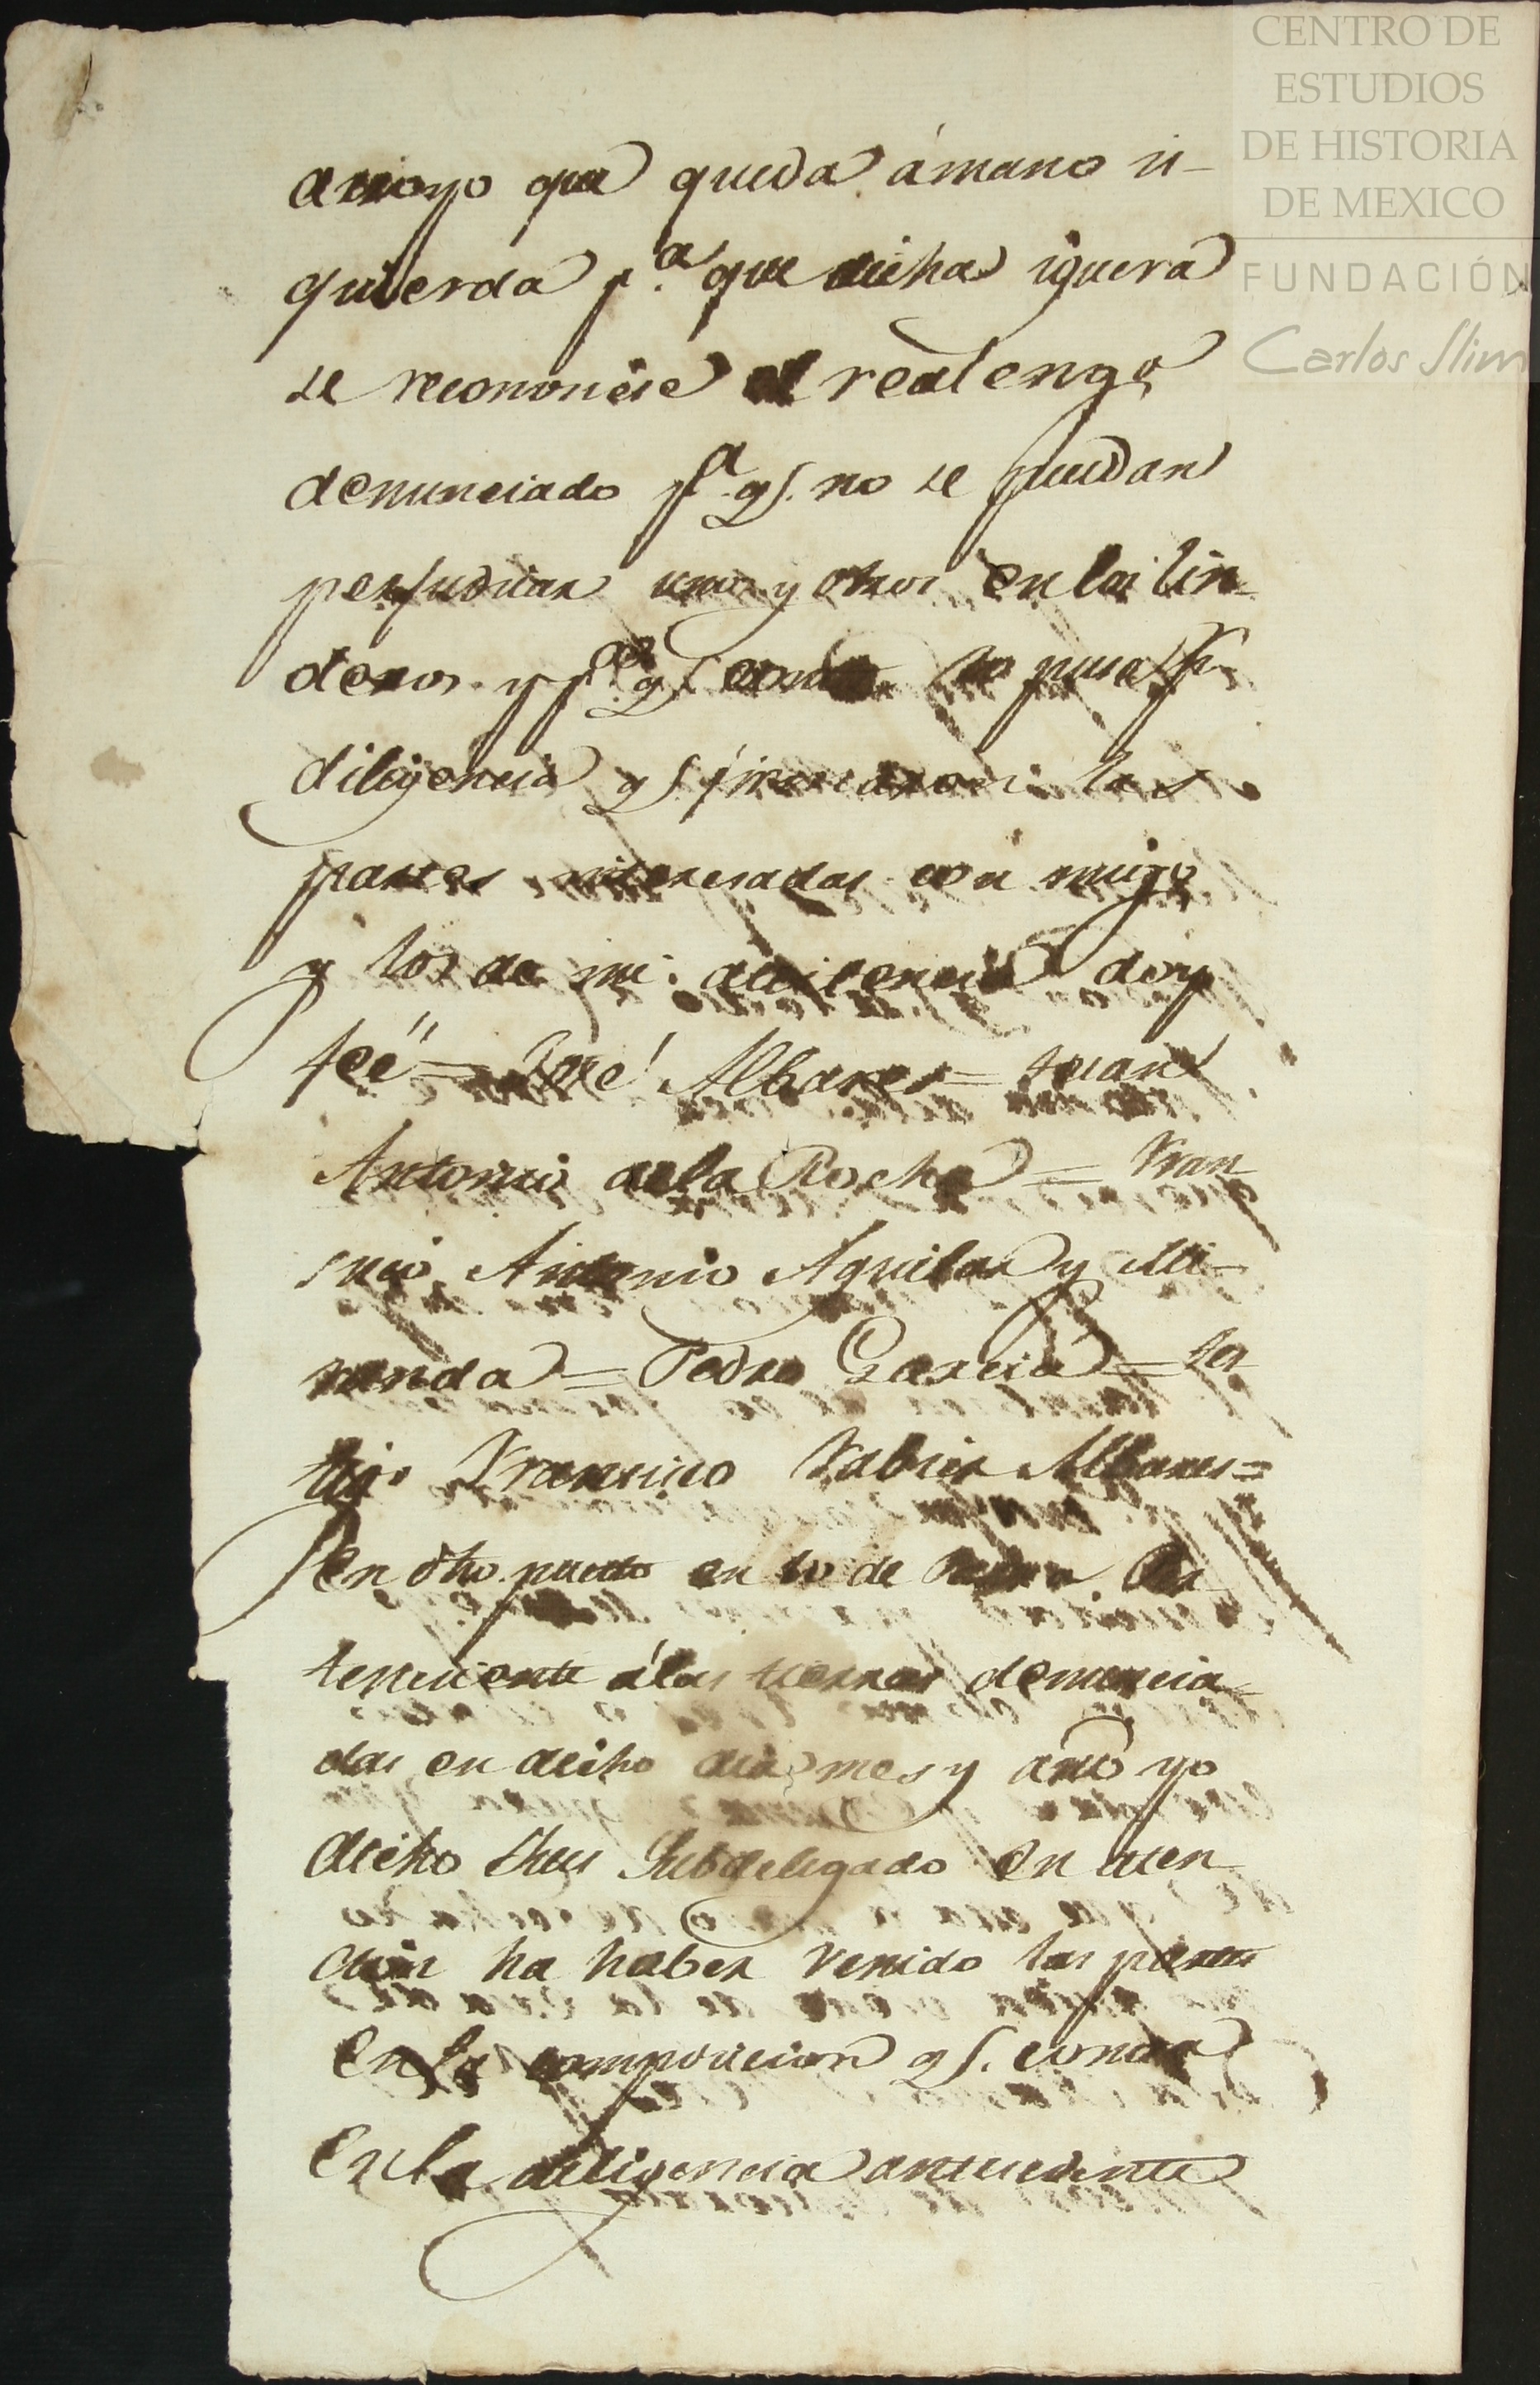 CENTRO DE
ESTUDIOS
DE HISTORIA
DE MEXICO
FUNDACIÓN
Carlos Slim
arroyo que queda ámano is-
quierda p.a que dicha iguera
se reconosca el realengo
denunciado p.a q.e no se puedan
perjudicar unos y otros en los lin-
deros y p.a q.e conste lo puse p.r
diligencia q.e firmaron las
partes interesadas con migo
y los de mi asistencia doy
feé = José Albares = Juan
Antonio dela Rocha = Fran-
sisco Antonio Aguilar y Mi-
randa = Pedro Garcia = tes-
tigo Fransisco Xabier Albares =
En dho. puesto en lo de
teneciente á las tierras denuncia-
das en dicho dia mes y año yo
dicho Jues Subdelegado en aten-
cion ha haber venido las partes
en la composicion q.e consta
En la diligencia antecedente